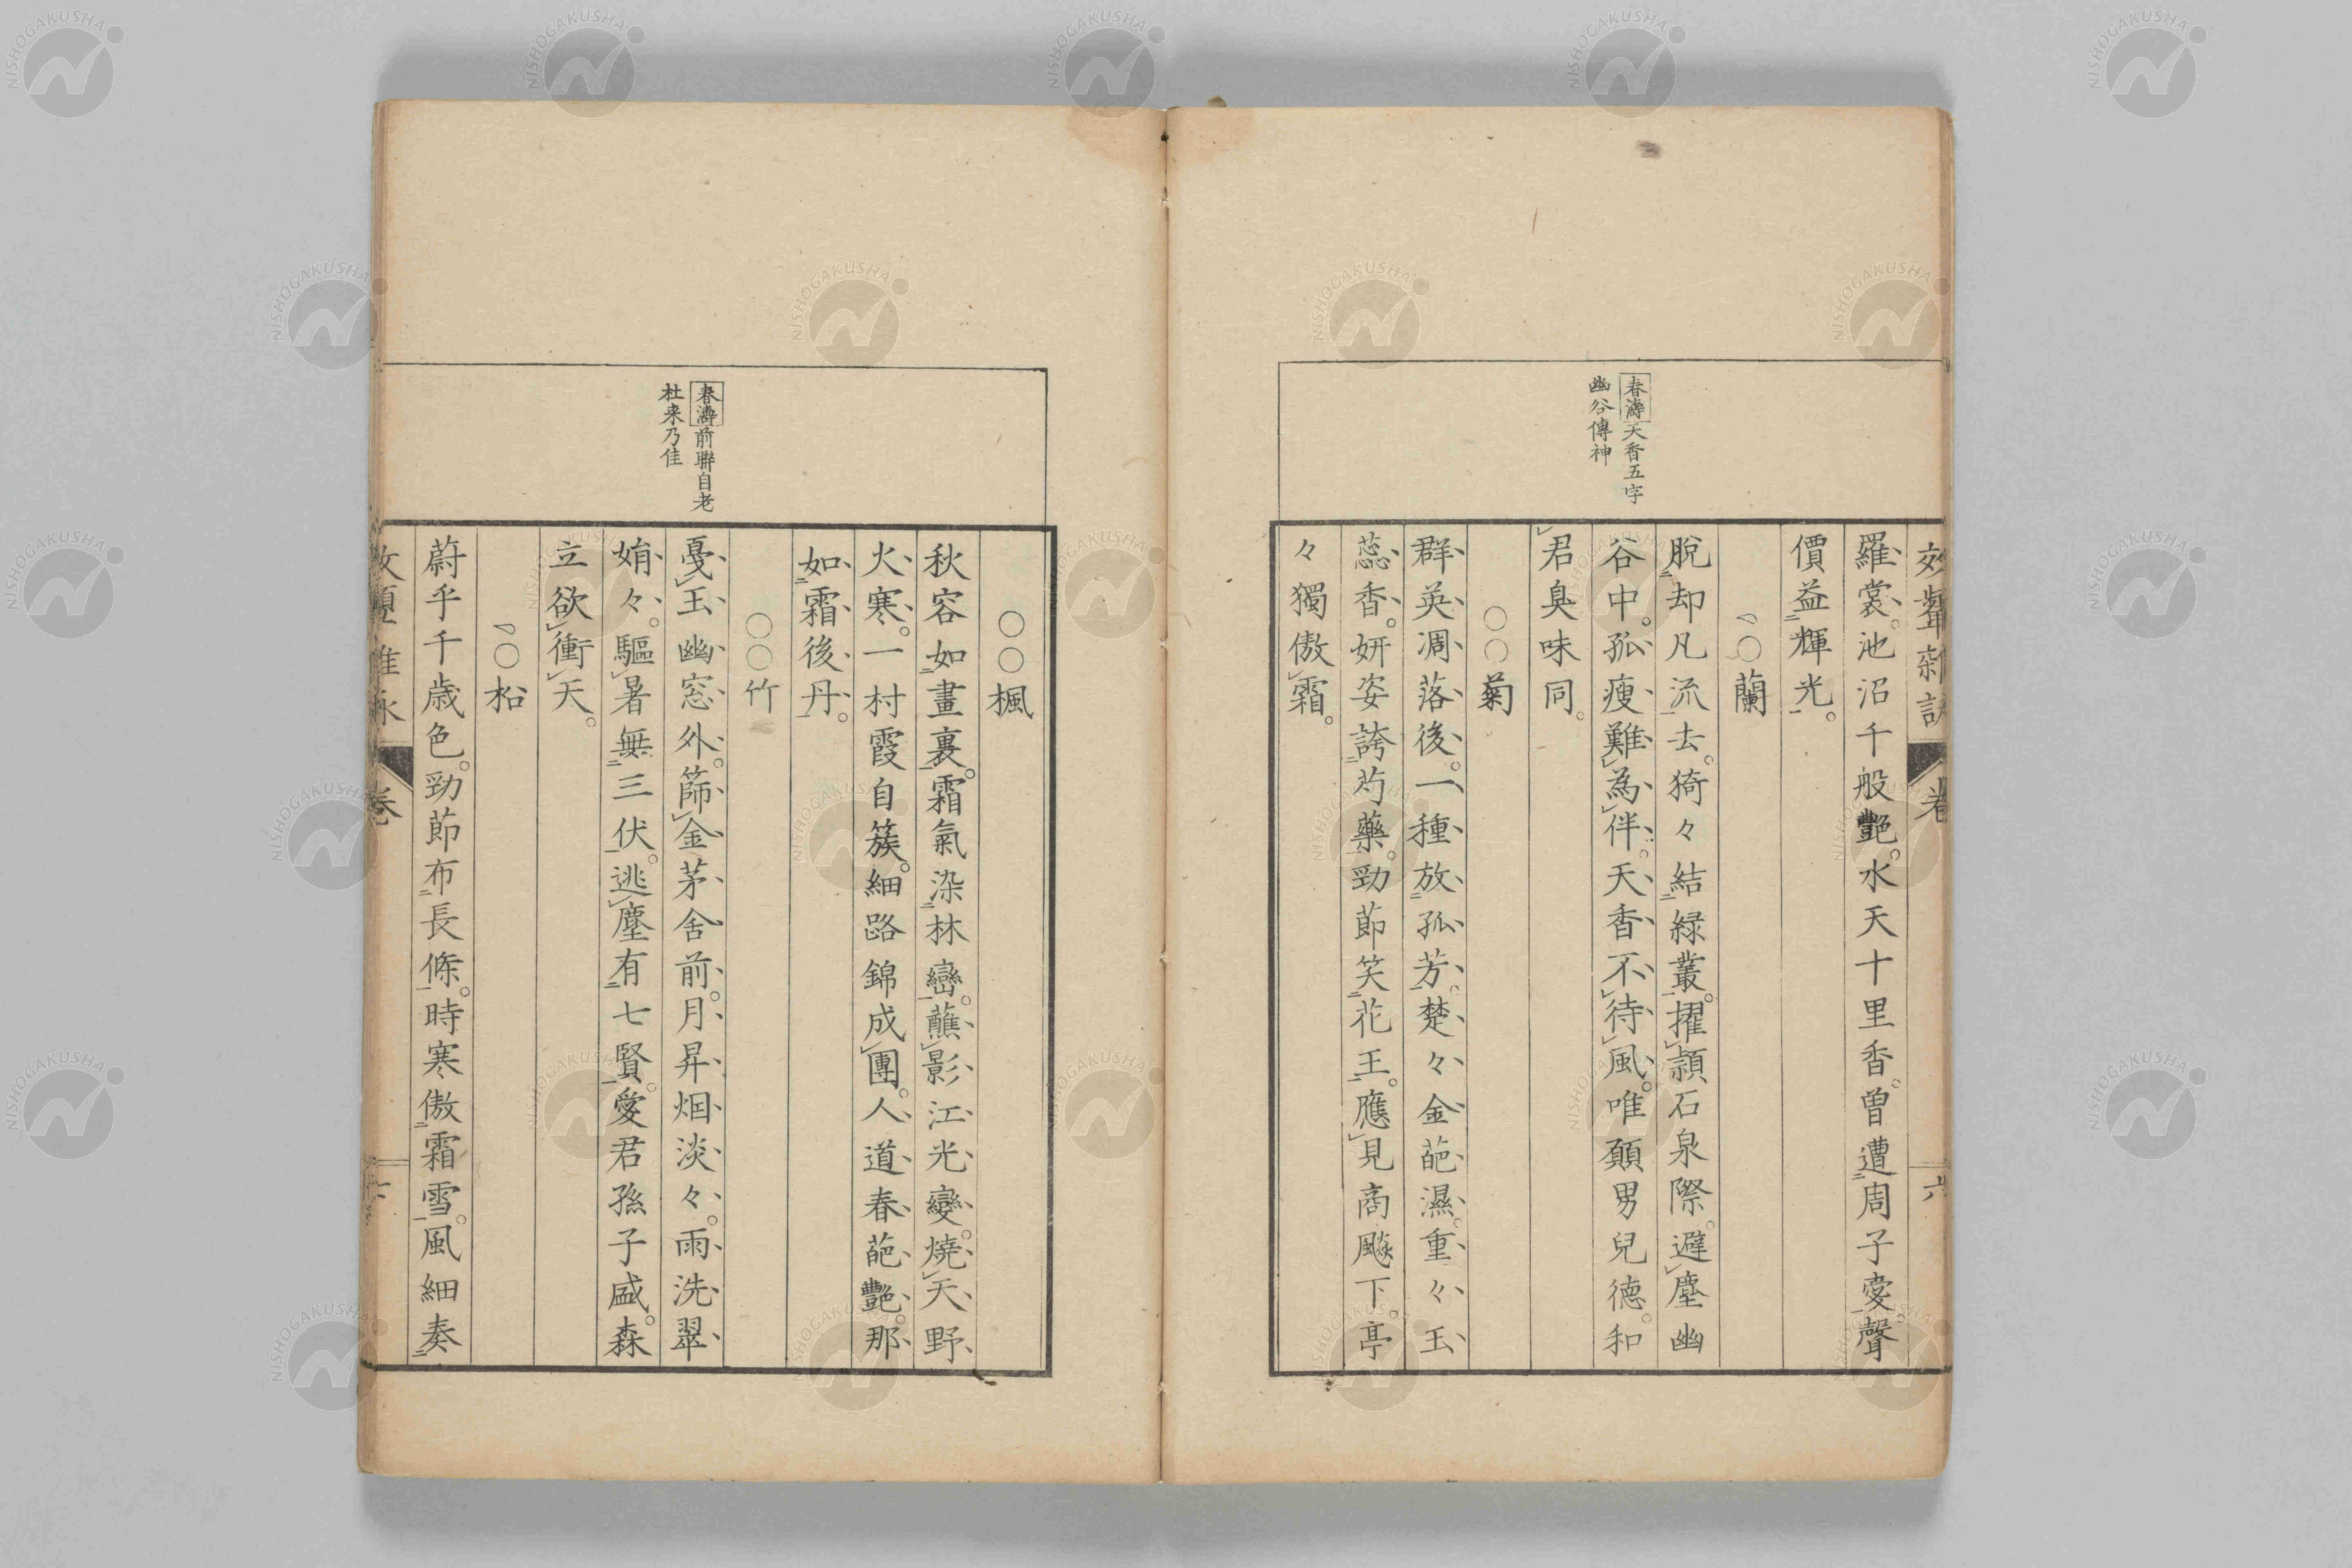 春濤天香五字
幽谷傳神
羅裳。池沼千般艷。水天十里香。曽遭周子愛。聲
價益輝光。
蘭
脫却凡流去。猗々結緑叢。擢頴石泉際。避塵幽
谷中。孤瘦難為伴。天香不待風。唯願男兒德。和
君臭味同。
○○菊
群英凋落後。一種放孤芳。楚々金葩濕。重々玉
蕊香。妍姿誇芍藥。勁節笑花王。應見商飈下。亭
々獨傲霜。
春濤前聯自老
杜来乃佳
○○楓
秋容如畫裏。霜氣染林巒。蘸影江光變。燒天野
火寒。一村霞自簇。細路錦成團。人道春葩艷。那
如霜後丹。
○○竹
戞玉幽窓外。篩金茅舍前。月昇烟淡々。雨洗翠
娟々。驅暑無三伏。逃塵有七賢。愛君孫子盛。森
立欲衝天。
松
蔚乎千歳色。勁節布長條。時寒傲霜雪。風細奏